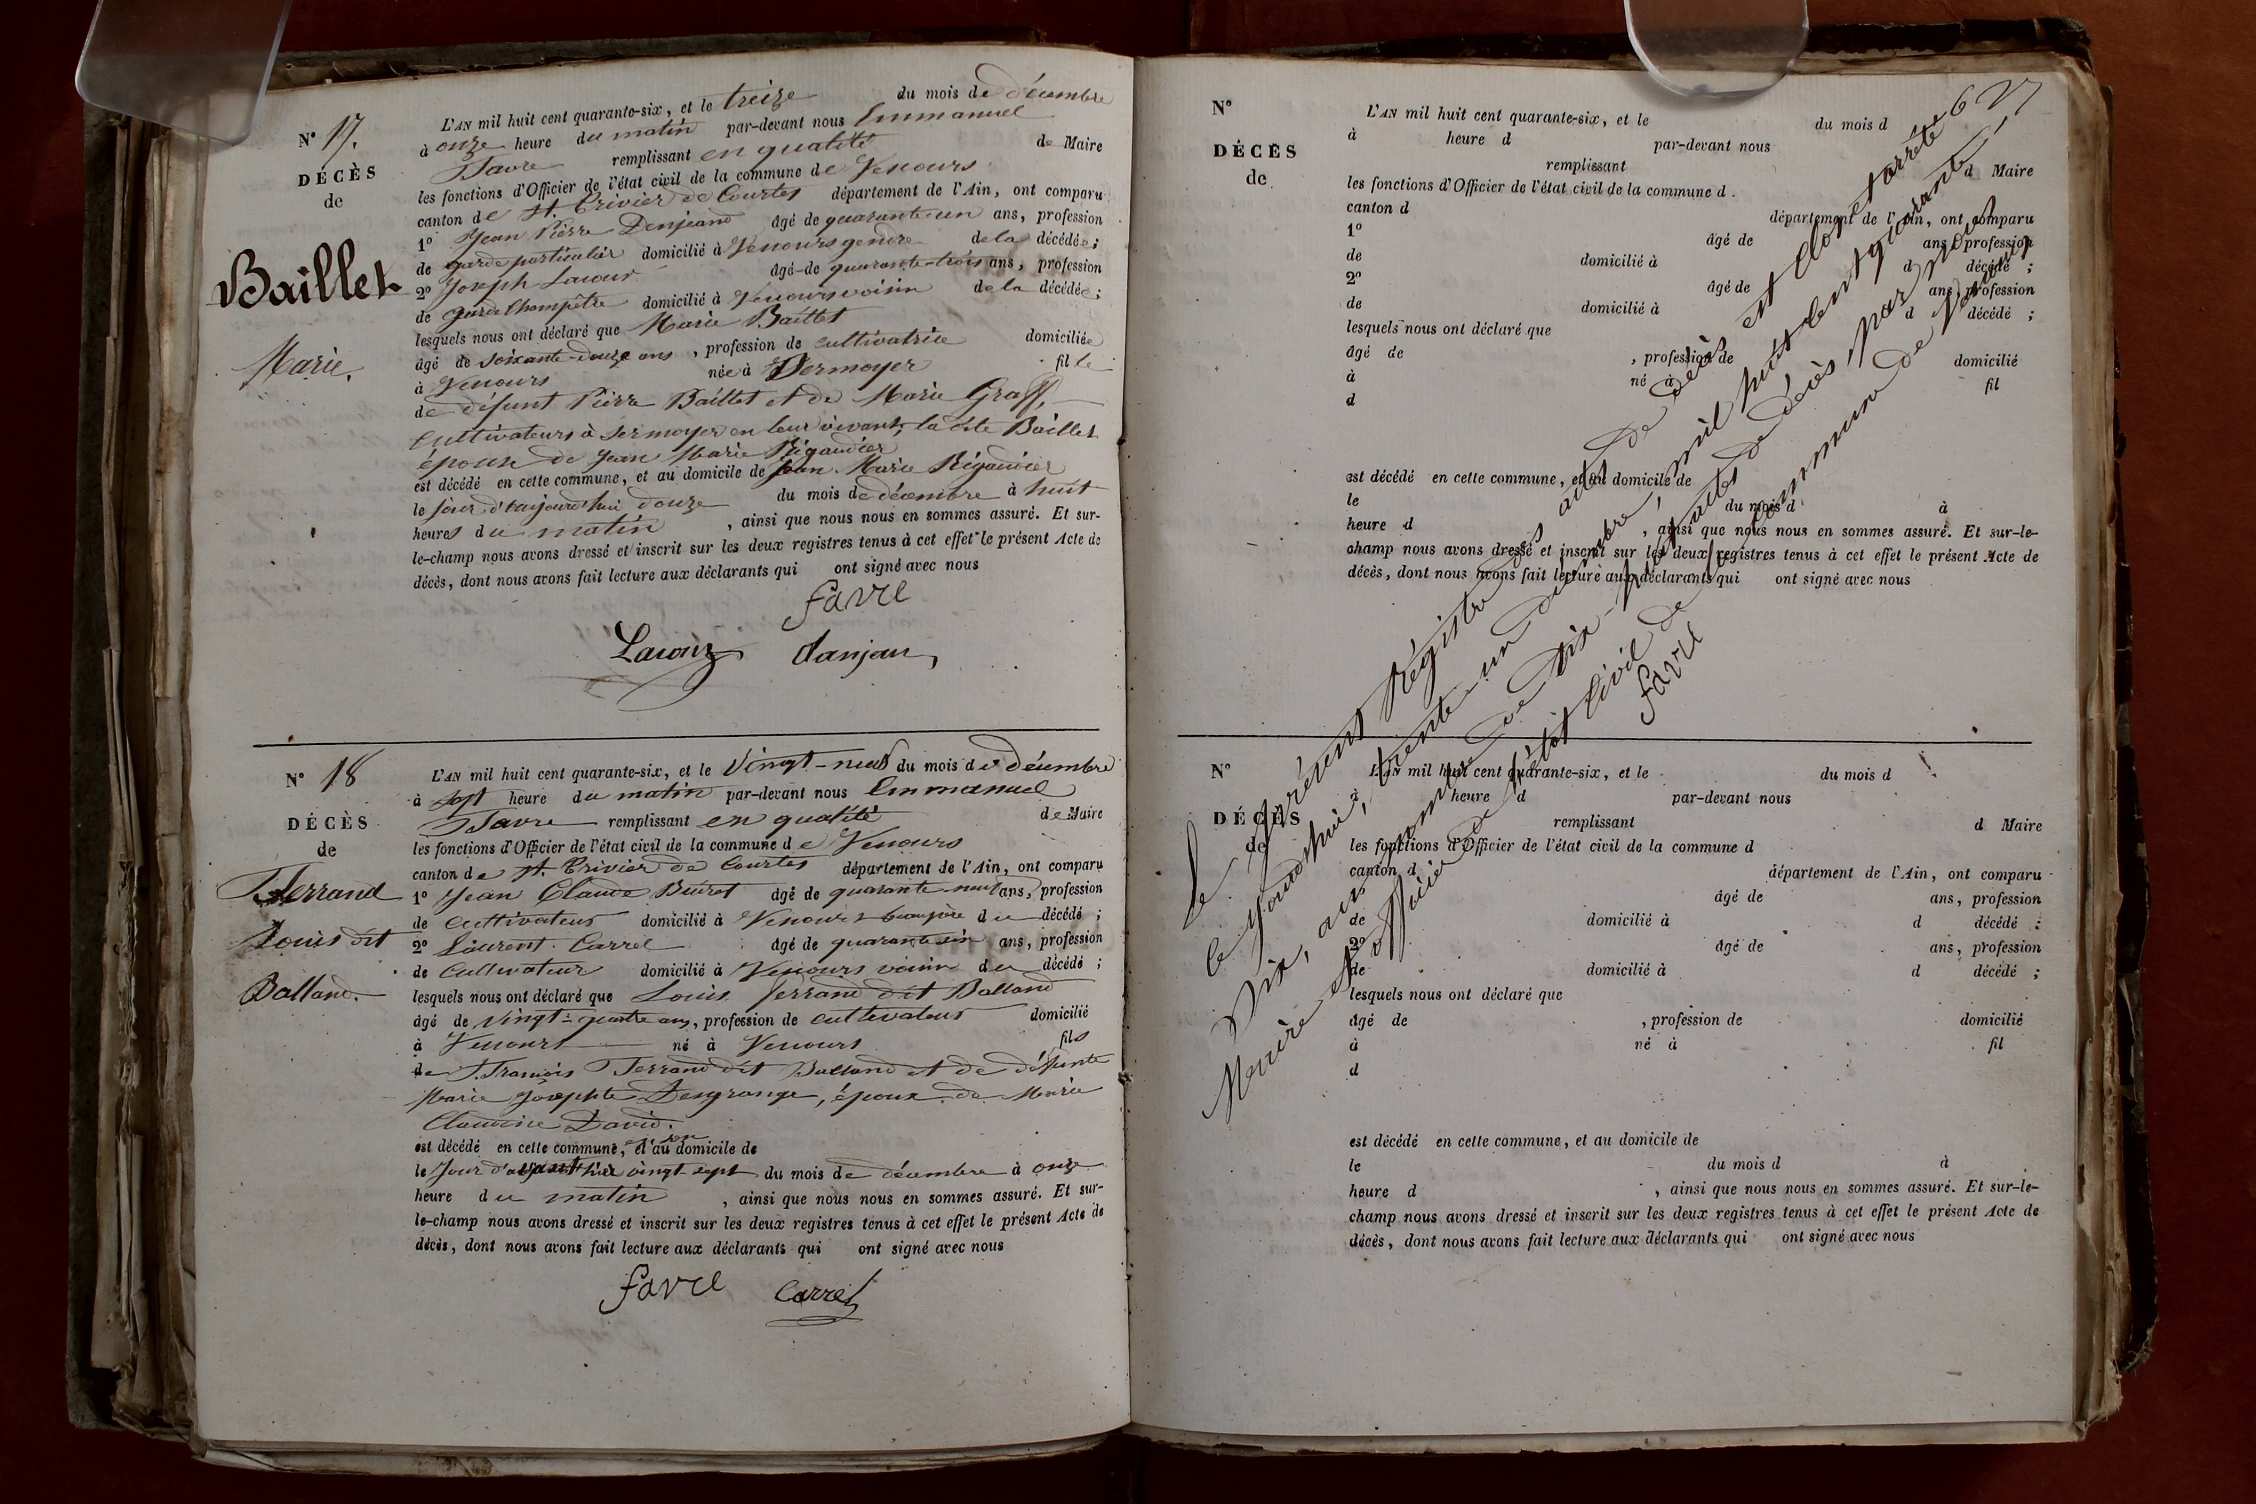 N° 17.
DÉCÈS
de
Baillet
Marie.
L'AN mil huit cent quarante-six, et le treize du mois de décembre
à onze heure du matin par-devant nous Emmanuel
Favre remplissant en qualité de Maire
les fonctions d'Officier de l'état civil de la commune de Vescours
canton de St. Trivier de Courtes département de l'Ain, ont comparu
1° Jean Pierre Denjean âgé de quarante un ans, profession
de garde particulier domicilié à Vescours gendre de la décédée ;
2° Joseph Lacour âgé de quarante-trois ans, profession
de garde Champêtre domicilié à Vescours voisin de la décédée ;
lesquels nous ont déclaré que Marie Baillet
âgé de soixante-douze ans , profession de cultivatrice domiciliée
à Vescours née à Sermoyer fille
de défunt Pierre Baillet et de Marie Graff,
cultivateurs à Sermoyer en leur vivant, la dite Baillet
épouse de Jean Marie Rigaudier
est décédé en cette commune, et au domicile de Jean Marie Rigaudier
le jour d'aujourd'hui douze du mois de décembre à huit
heures du matin , ainsi que nous nous en sommes assuré. Et sur-
le-champ nous avons dressé et inscrit sur les deux registres tenus à cet effet le présent Acte de
décès, dont nous avons fait lecture aux déclarants qui ont signé avec nous
favre
Lacour danjean
N° 18
DÉCÈS
de
Ferrand
Louis dit
Balland.
L'AN mil huit cent quarante-six, et le vingt-neuf du mois de décembre
à sept heure du matin par-devant nous Emmanuel
Favre remplissant en qualité de Maire
les fonctions d'Officier de l'état civil de la commune de Vescours
canton de St. Trivier de Courtes département de l'Ain, ont comparu
1° Jean Claude Beurot âgé de quarante neuf ans, profession
de cultivateur domicilié à Vescours beaupère du décédé ;
2° Laurent Carrel âgé de quarante six ans, profession
de cultivateur domicilié à Vescours voisin du décédé ;
lesquels nous ont déclaré que Louis Ferrand dit Balland
âgé de vingt-quatre ans, profession de cultivateur domicilié
à Vescours né à Vescours fils
de François Ferrand dit Balland et de défunte
Marie Josephte Desgrange, époux de Marie
Claudine David.
est décédé en cette commune, et au domicile de
le jour d'avant hier vingt sept du mois de décembre à onze
heure du matin , ainsi que nous nous en sommes assuré. Et sur-
le-champ nous avons dressé et inscrit sur les deux registres tenus à cet effet le présent Acte de
décès, dont nous avons fait lecture aux déclarants qui ont signé avec nous
favre Carrel
627
N°
DÉCÈS
de
L'AN mil huit cent quarante-six, et le du mois d
à heure d par-devant nous
remplissant d Maire
les fonctions d'Officier de l'état civil de la commune d
canton d département de l'Ain, ont comparu
1° âgé de ans, profession
de domicilié à d décédé ;
2° âgé de ans, profession
de domicilié à d décédé ;
lesquels nous ont déclaré que
âgé de , profession de domicilié
à né à fil
d
est décédé en cette commune, et au domicile de
le du mois d à
heure d , ainsi que nous nous en sommes assuré. Et sur-le-
champ nous avons dressé et inscrit sur les deux registres tenus à cet effet le présent Acte de
décès, dont nous avons fait lecture aux déclarants qui ont signé avec nous
Le présent Régistre des actes de décès est clos et arrêté
ce jourd'hui, trente-un décembre, mil huit cent quarante
Six, au nombre de Dix-huit actes de décès, par nous
Maire et officier de l'état civil de la commune de Vescours
favre
N°
DÉCÈS
de
L'AN mil huit cent quarante-six, et le du mois d
à heure d par-devant nous
remplissant d Maire
les fonctions d'Officier de l'état civil de la commune d
canton d département de l'Ain, ont comparu
âgé de ans, profession
de domicilié à d décédé ;
2° âgé de ans, profession
de domicilié à d décédé ;
lesquels nous ont déclaré que
âgé de , profession de domicilié
à né à fil
d
est décédé en cette commune, et au domicile de
le du mois d à
heure d , ainsi que nous nous en sommes assuré. Et sur-le-
champ nous avons dressé et inscrit sur les deux registres tenus à cet effet le présent Acte de
décès, dont nous avons fait lecture aux déclarants qui ont signé avec nous